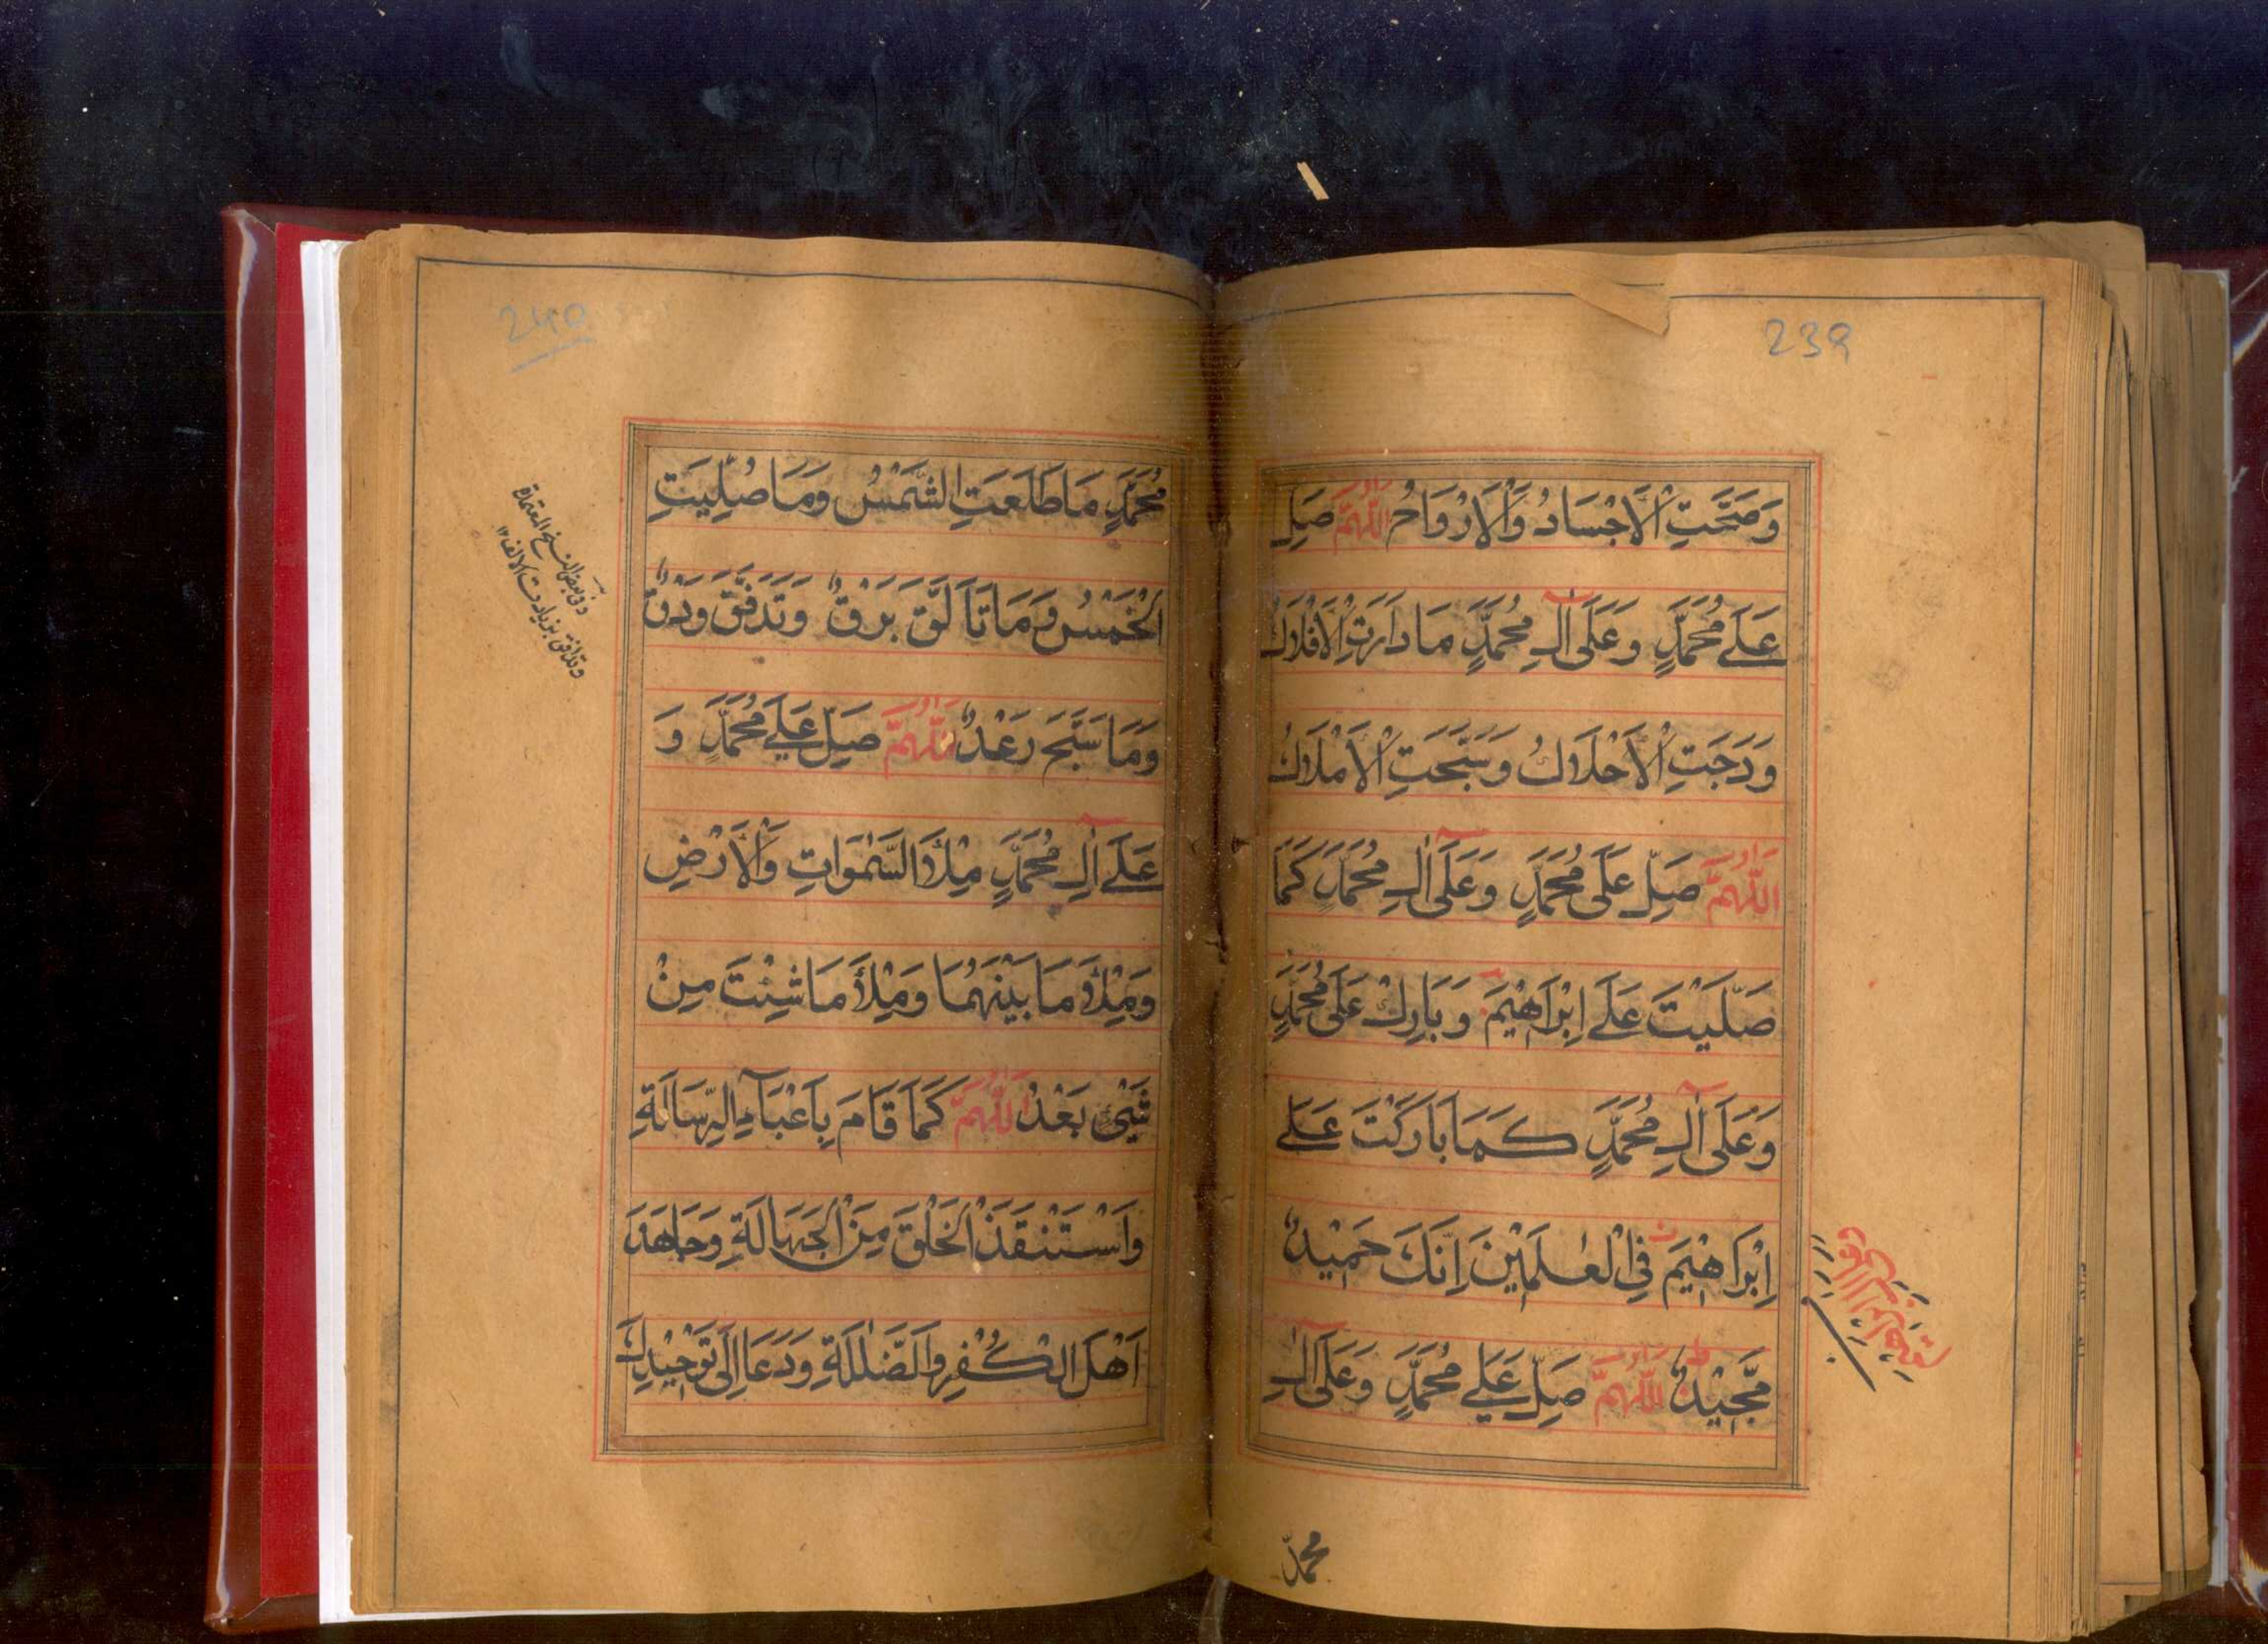 239
وَصَحَّتِ الْاَجْسَادُ وَالْاَرْوَاحُ اللّٰهُمَّ صَلِّ
عَلٰے مُحَمَّدٍ وَعَلَى اٰلِ مُحَمَّدٍ مَا دَارَتِ الْاَفْلَاكُ
وَدَجَتِ الْاَحْلَاكُ وَسَبَّحَتِ الْاَمْلَاكُ
اَللّٰهُمَّ صَلِّ عَلَى مُحَمَّدٍ وَعَلَى اٰلِ مُحَمَّدٍ كَمَا
صَلَّيْتَ عَلٰے اِبْرَاهِيْمَ وَبَارِكْ عَلَى مُحَمَّدٍ
وَعَلَى اٰلِ مُحَمَّدٍ كَمَا بَارَكْتَ عَلٰے
اِبْرَاهِيْمَ فِي الْعٰلَمِيْنَ اِنَّكَ حَمِيْدٌ
مَّجِيْدٌ اَللّٰهُمَّ صَلِّ عَلٰے مُحَمَّدٍ وَعَلَى اٰلِ
محمدٍ
240
مُحَمَّدٍ مَا طَلَعَتِ الشَّمْسُ وَمَا صُلِّيَتِ
الْخَمْسُ وَمَا تَاَلَّقَ بَرْقٌ وَتَدَفَّقَ وَدْقٌ
وَمَا سَبَّحَ رَعْدٌ اَللّٰهُمَّ صَلِّ عَلٰے مُحَمَّدٍ وَ
عَلٰے اٰلِ مُحَمَّدٍ مِلْأَ السَّمٰوَاتِ وَالْاَرْضِ
وَمِلْأَ مَا بَيْنَهُمَا وَمِلْأَ مَا شِئْتَ مِنْ
شَيْئٍ بَعْدُ اَللّٰهُمَّ كَمَا قَامَ بِاَعْبَآءِ الرِّسَالَةِ
وَاسْتَنْقَذَ الْخَلْقَ مِنَ الْجَهَالَةِ وَجَاهَدَ
اَهْلَ الْكُفْرِ وَالضَّلٰلَةِ وَدَعَا اِلَى تَوْحِيْدِكَ
وفى بعض النسخ المعتمدة